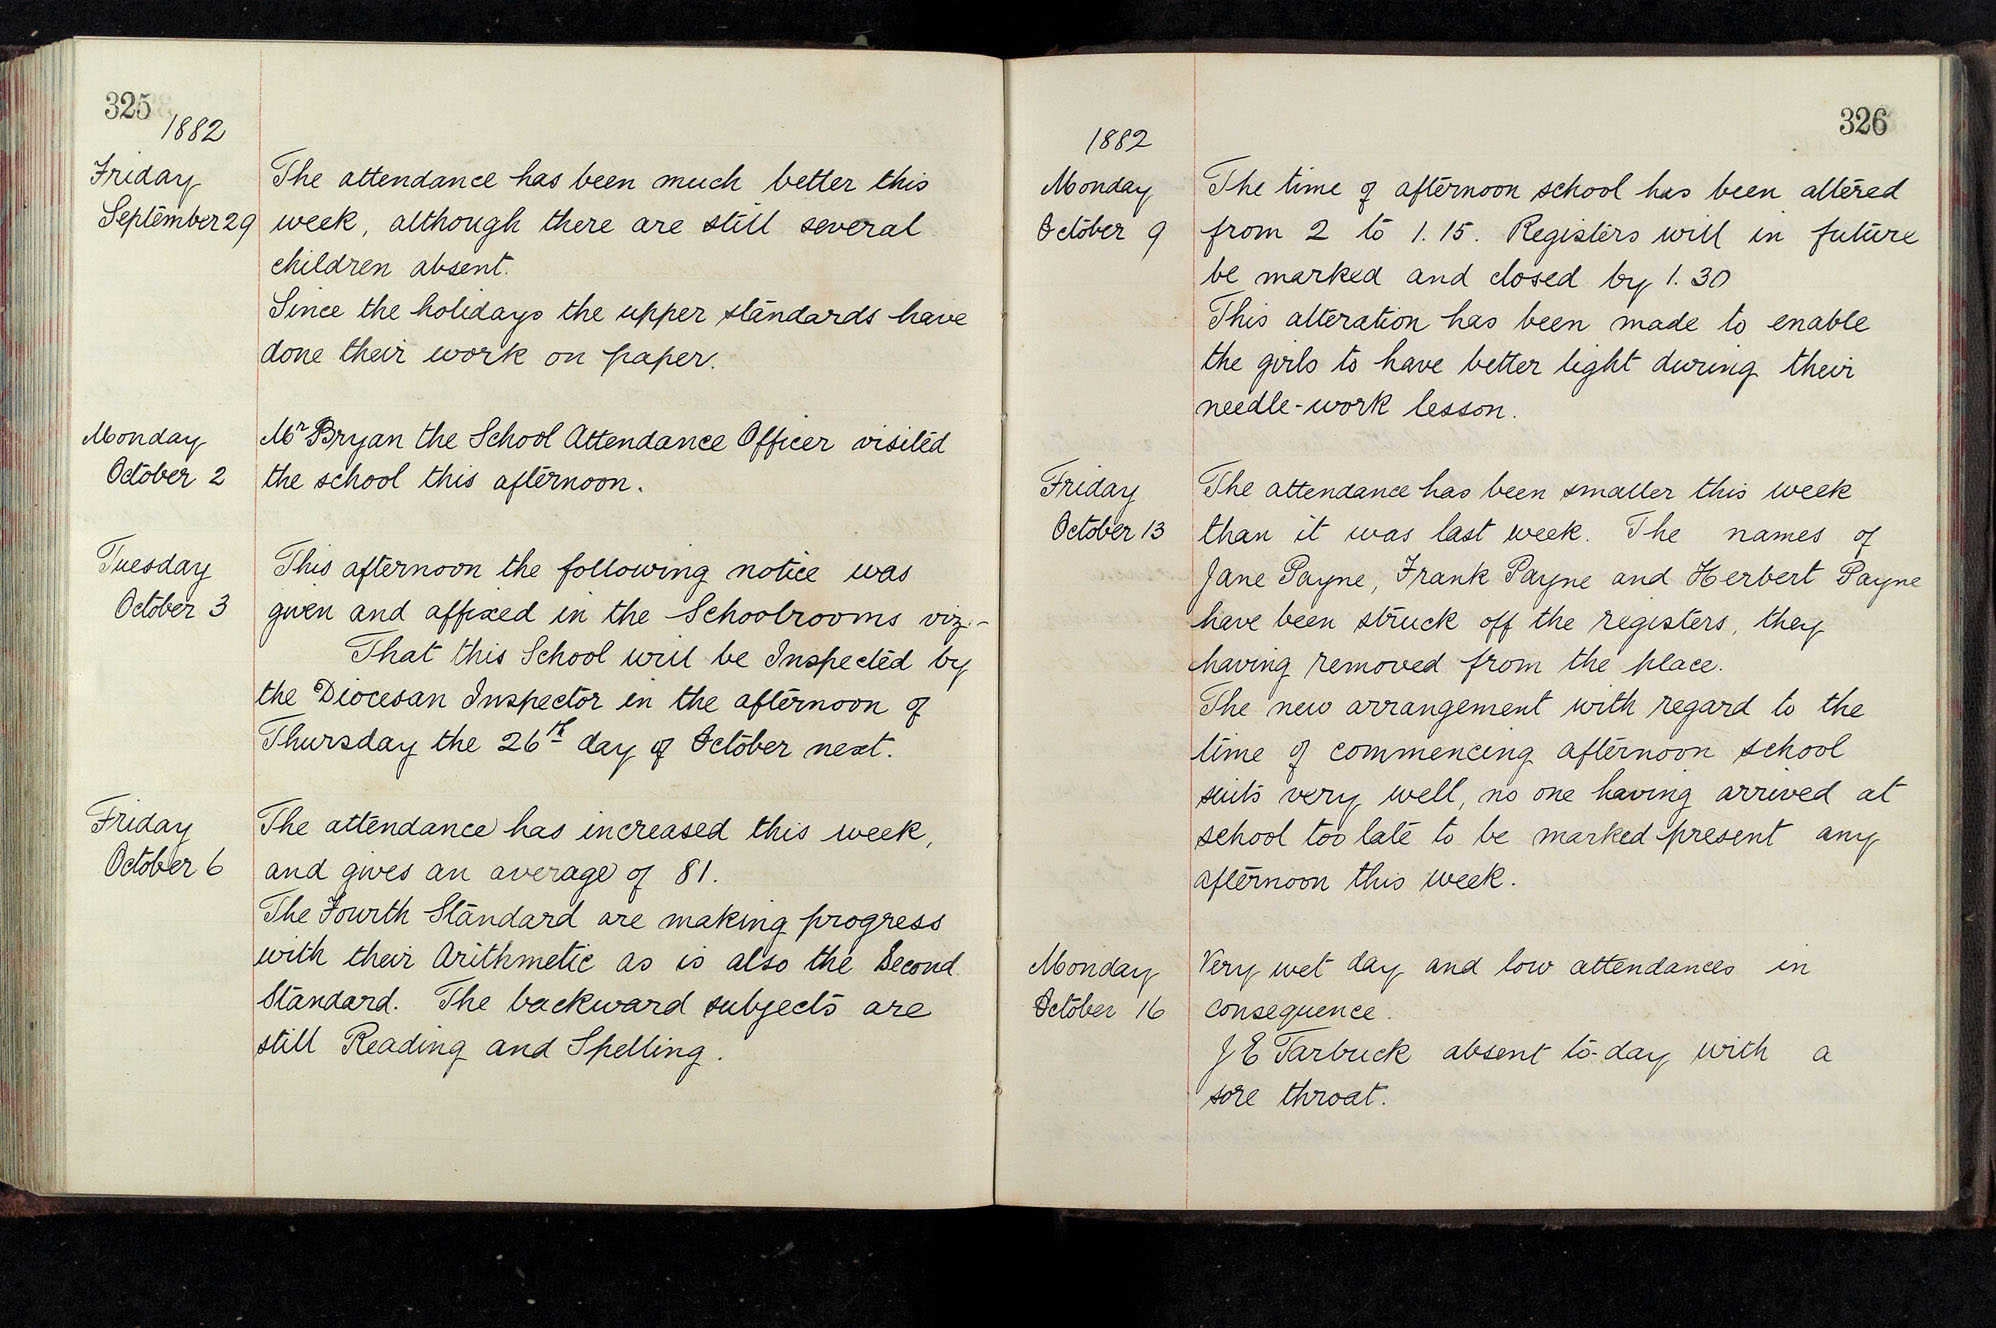 325
1882
Friday
September 29
The attendance has been much better this
week, although there are still several
children absent.
Since the holidays the upper standards have
done their work on paper.
Monday
October 2
Mr Bryan the School Attendance Officer visited
the school this afternoon.
Tuesday
October 3
This afternoon the following notice was
given and affixed in the Schoolrooms viz:-
That this School will be Inspected by
the Diocesan Inspector in the afternoon of
Thursday the 26th day of October next.
Friday
October 6
The attendance has increased this week,
and gives an average of 81.
The Fourth Standard are making progress
with their Arithmetic as is also the Second
Standard. The backward subjects are
still Reading and Spelling.
326
1882
Monday
October 9
The time of afternoon school has been altered
from 2 to 1.15. Registers will in future
be marked and closed by 1.30
This alteration has been made to enable
the girls to have better light during their
needle-work lesson.
Friday
October 13
The attendance has been smaller this week
than it was last week. The names of
Jane Payne, Frank Payne and Herbert Payne
have been struck off the registers, they
having removed from the place.
The new arrangement with regard to the
time of commencing afternoon school
suits very well, no one having arrived at
school too late to be marked present any
afternoon this week.
Monday
October 16
Very wet day and low attendances in
consequence.
J E Tarbuck absent to-day with a
sore throat.